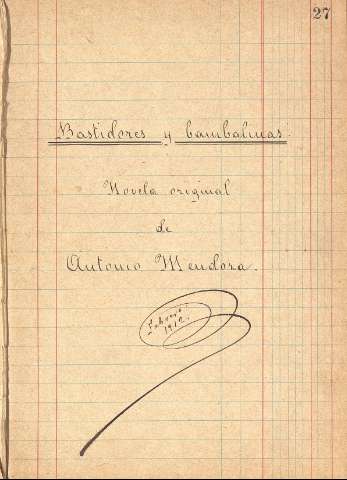 27
Bastidores y bambalinas.
Novela original
de
Antonio Mendoza.
Febrero
1912.